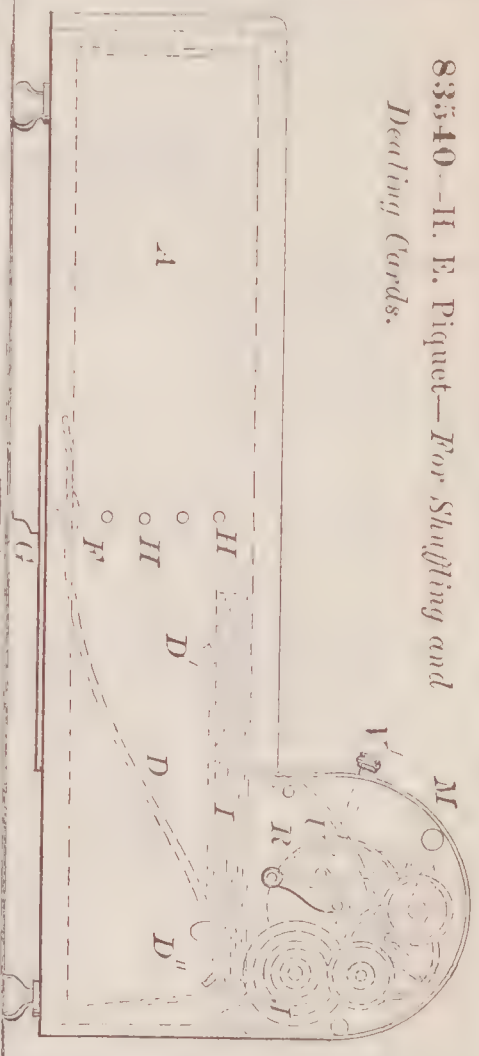 83540--H. E. Piquet—For Shuffling and
Dealing Cards.
A
G
F
H
H
D'
D
I
D''
R
U
V
M
J